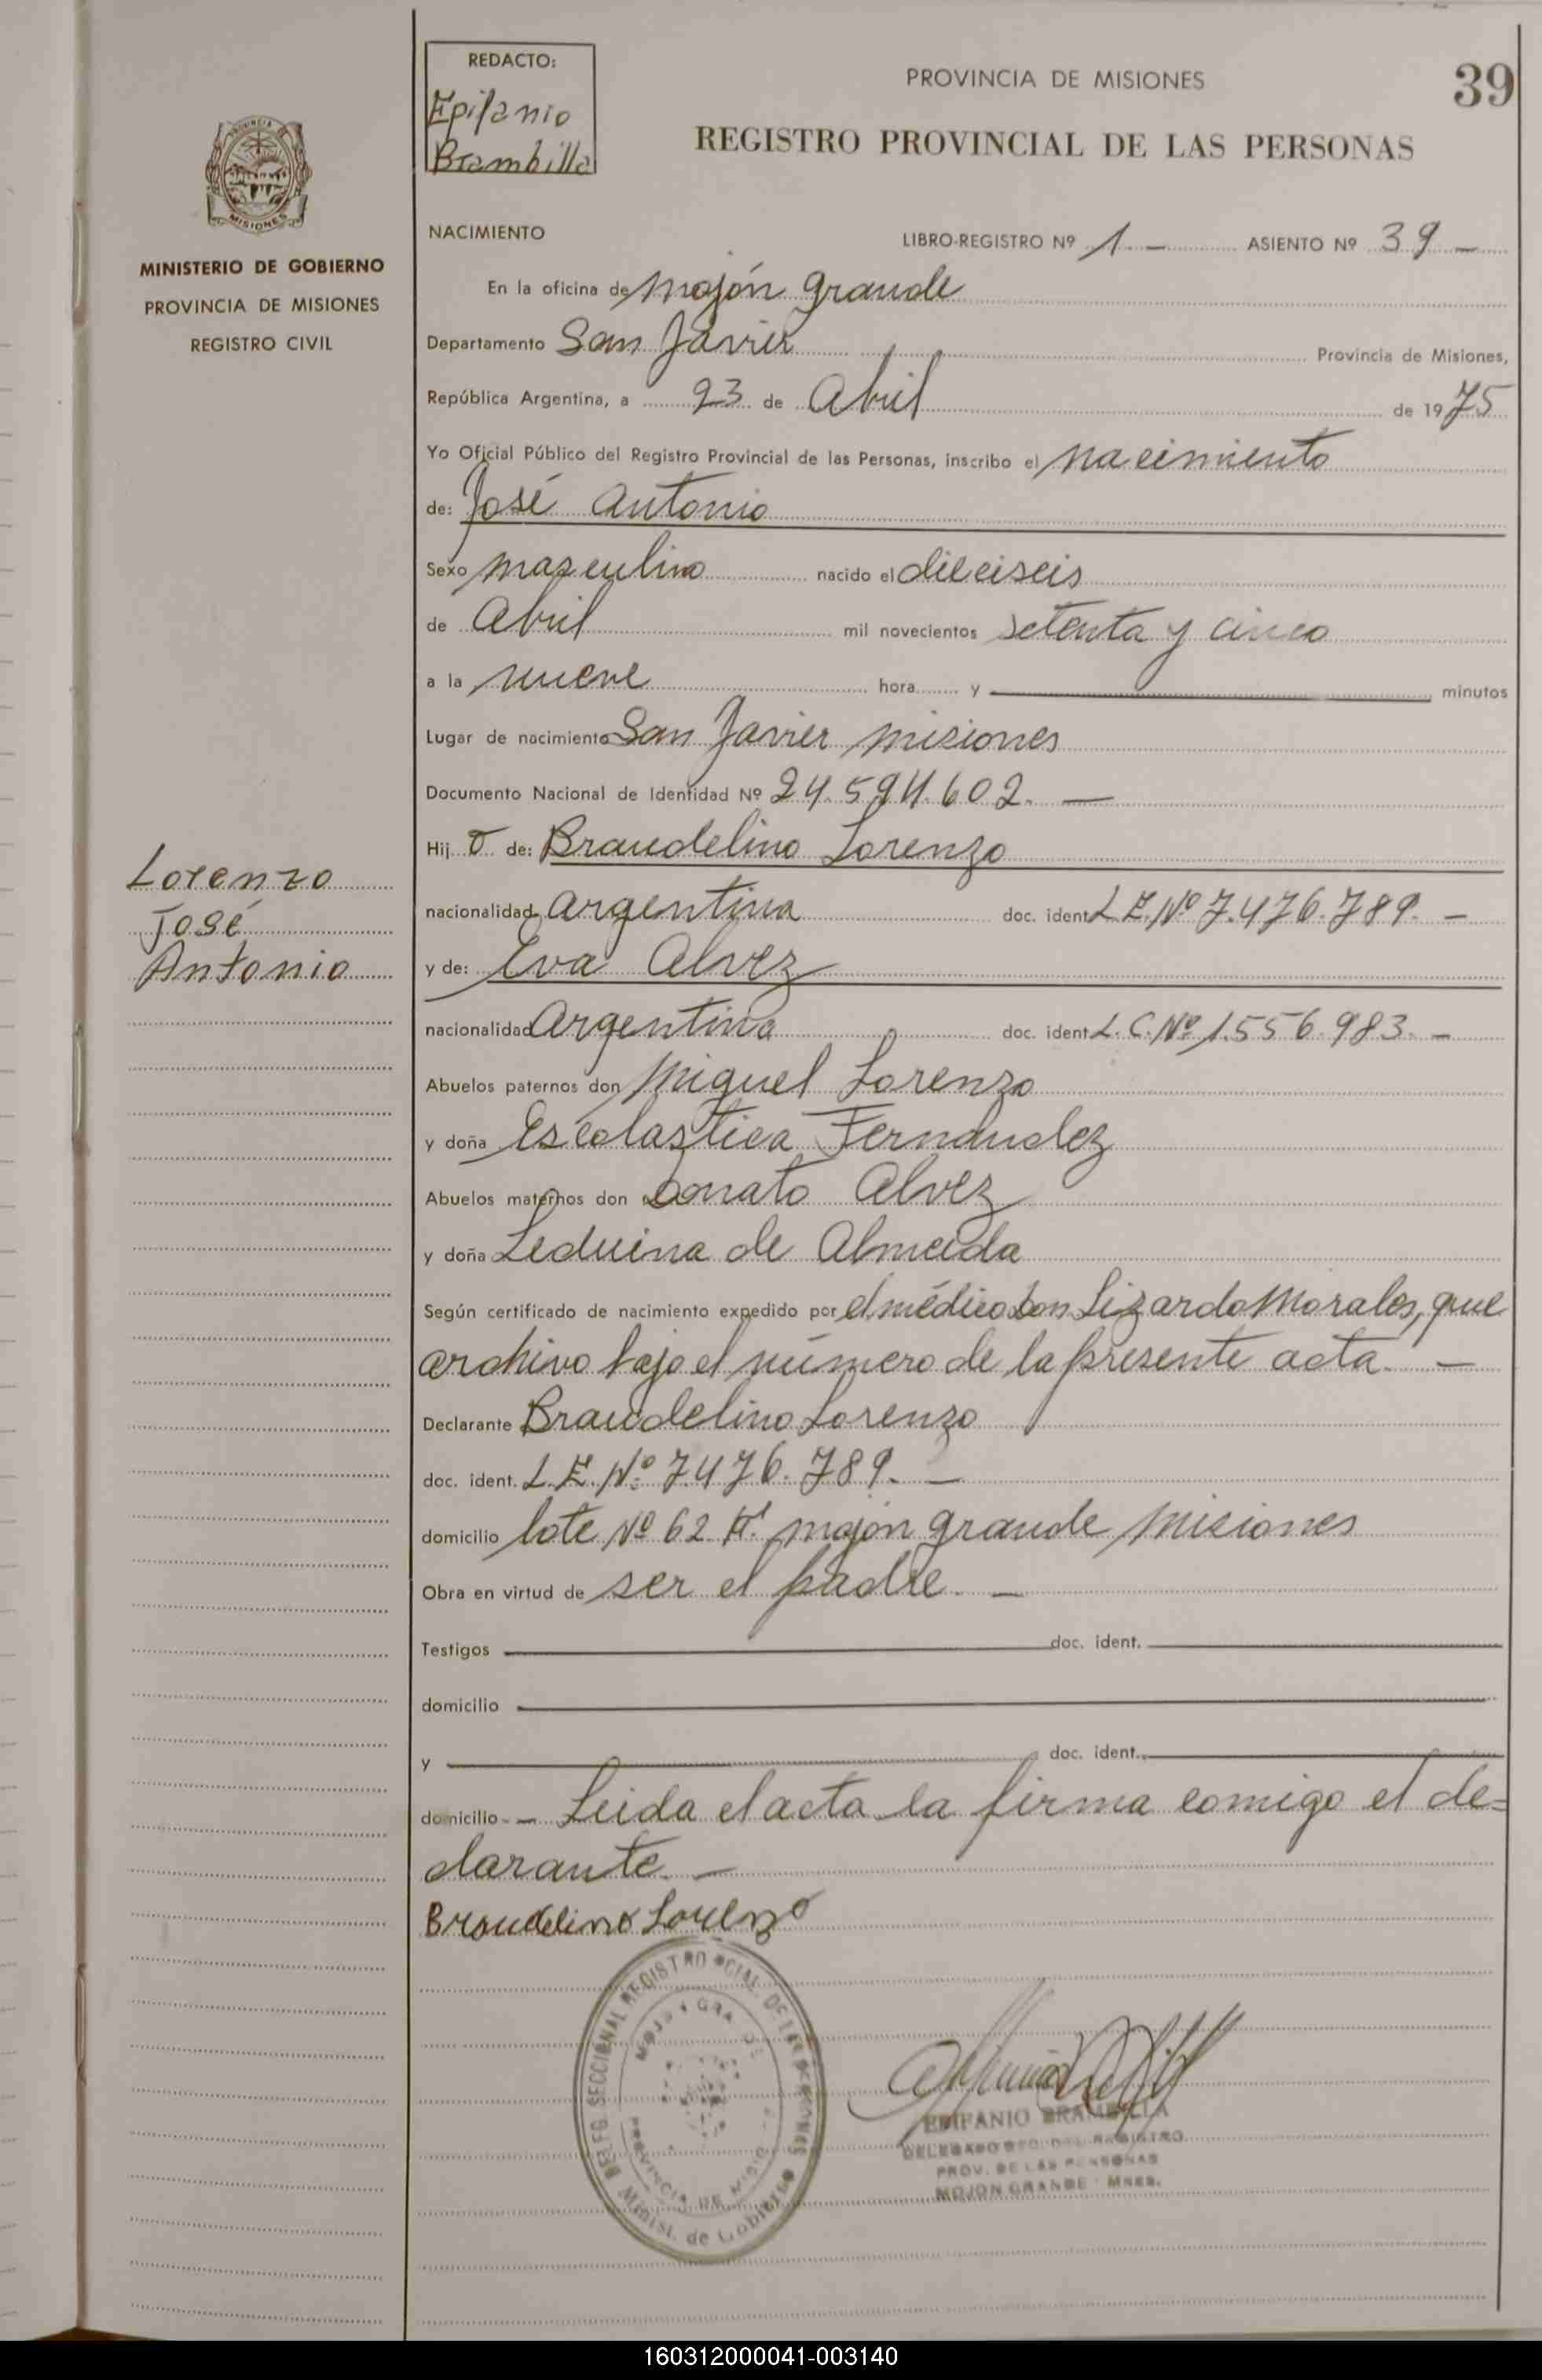 REDACTO:
Epifanio
Brambilla
PROVINCIA DE MISIONES
39
REGISTRO PROVINCIAL DE LAS PERSONAS
MISIONES
MINISTERIO DE GOBIERNO
PROVINCIA DE MISIONES
REGISTRO CIVIL
NACIMIENTO
LIBRO-REGISTRO Nº 1. - ASIENTO Nº 39 -
En la oficina de Mojón grande
Departamento San Javier Provincia de Misiones,
República Argentina, a 23 de Abril de 1975
Yo Oficial Público del Registro Provincial de las Personas, inscribo el nacimiento
de: José Antonio
Sexo masculino nacido el dieciseis
de Abril mil novecientos setenta y cinco
a la nueve hora y minutos
Lugar de nacimiento San Javier misiones
Documento Nacional de Identidad Nº 24.594.602. -
Hij o de: Braudelino Lorenzo
Lorenzo
José
Antonio
nacionalidad argentina doc. ident L E. Nº 7.476.789. -
y de: Eva Alvez
nacionalidad Argentina doc. ident L. C. Nº 1.556.983. -
Abuelos paternos don Miguel Lorenzo
y doña Escolastica Fernandez
Abuelos maternos don Donato Alvez
y doña Leduina de Almeida
Según certificado de nacimiento expedido por el médico Don Lizardo Morales, que
archivo bajo el número de la presente acta. -
Declarante Braudelino Lorenzo
doc. ident. L. E. Nº 7.476.789. -
domicilio lote Nº 62 mojón grande Misiones
Obra en virtud de ser el padre. -
Testigos doc. ident.
domicilio
y doc. ident.
domicilio - Leida el acta la firma comigo el de=
clarante. -
Braudelino Lorenzo
DELEG. SECCIONAL REGISTRO PCIAL. DE LAS PERSONAS
MOJON GRANDE
PROVINCIA DE MISIONES
Minist. de Gobierno
EPIFANIO BRAMBILLA
DELEGADO SEC. DEL REGISTRO
PROV. DE LAS PERSONAS
MOJON GRANDE - MNES.
160312000041-003140